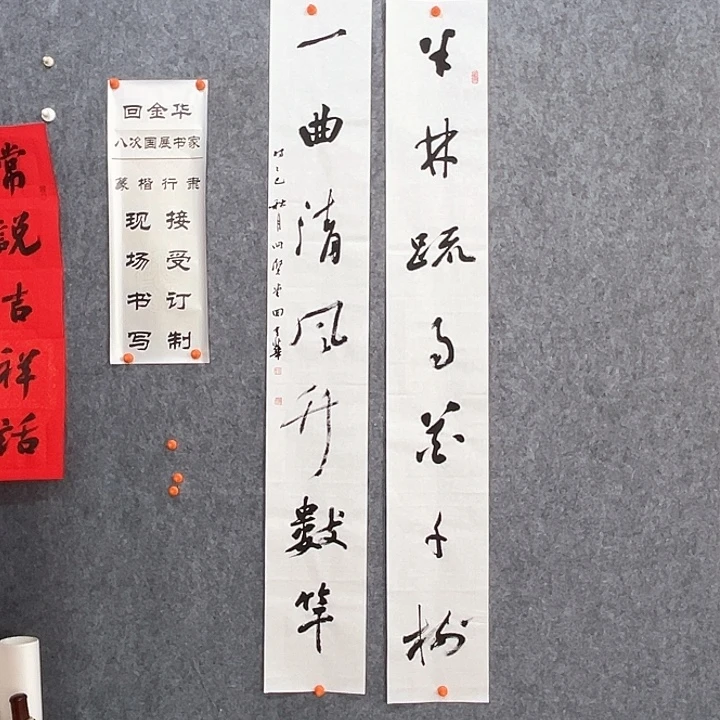 半林疏雨花千树
一曲清风竹數竿
乙巳秋月
回金华
八次国展书家
篆楷行隶
接受订制
现场书写
常說吉祥話